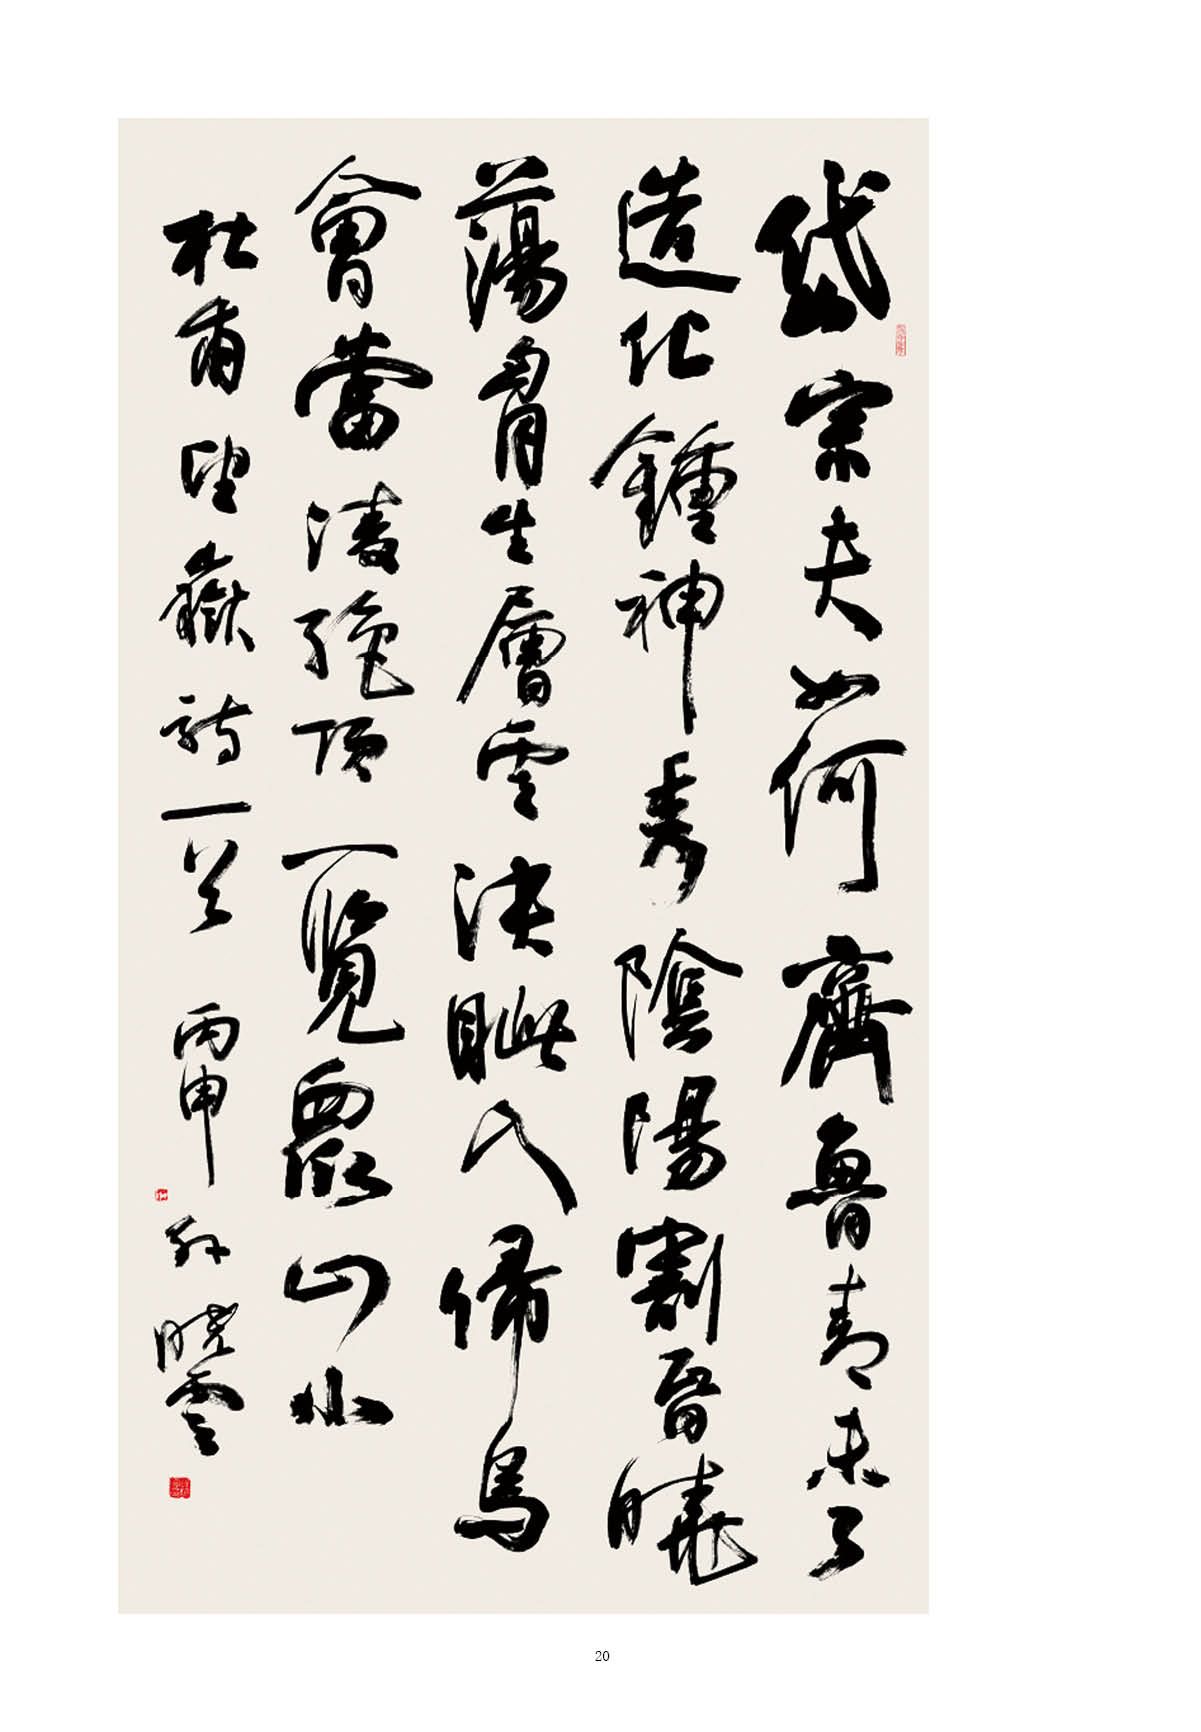 岱宗夫如何齊魯青未了
造化鍾神秀陰陽割昏曉
蕩胷生層雲決眦入歸鳥
會當淩絕頂一覽衆山小
杜甫望嶽詩一首丙申孙曉雲
20